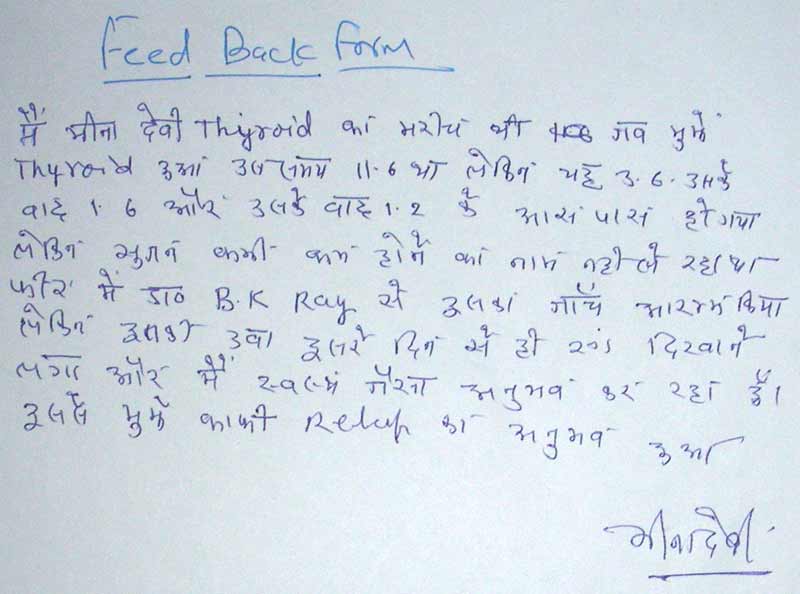 Feed Back Form
मैं मीना देवी Thyroid का मरीज थी जब मुझे
Thyroid हुआ उस समय 11.6 था लेकिन यह 3.6 उसके
बाद 1.6 और उसके बाद 1.2 के आस पास हो गया
लेकिन सुजन कभी कम होने का नाम नही ले रहा था
फीर मैं डा० B.K Ray से इसका जाँच आरम्भ किया
लेकिन इसकी दवा दुसरे दिन से ही रंग दिखाने
लगा और मैं स्वस्थ जैसा अनुभव कर रहा हूँ।
इससे मुझे काफी Relief का अनुभव हुआ
मीना देवी